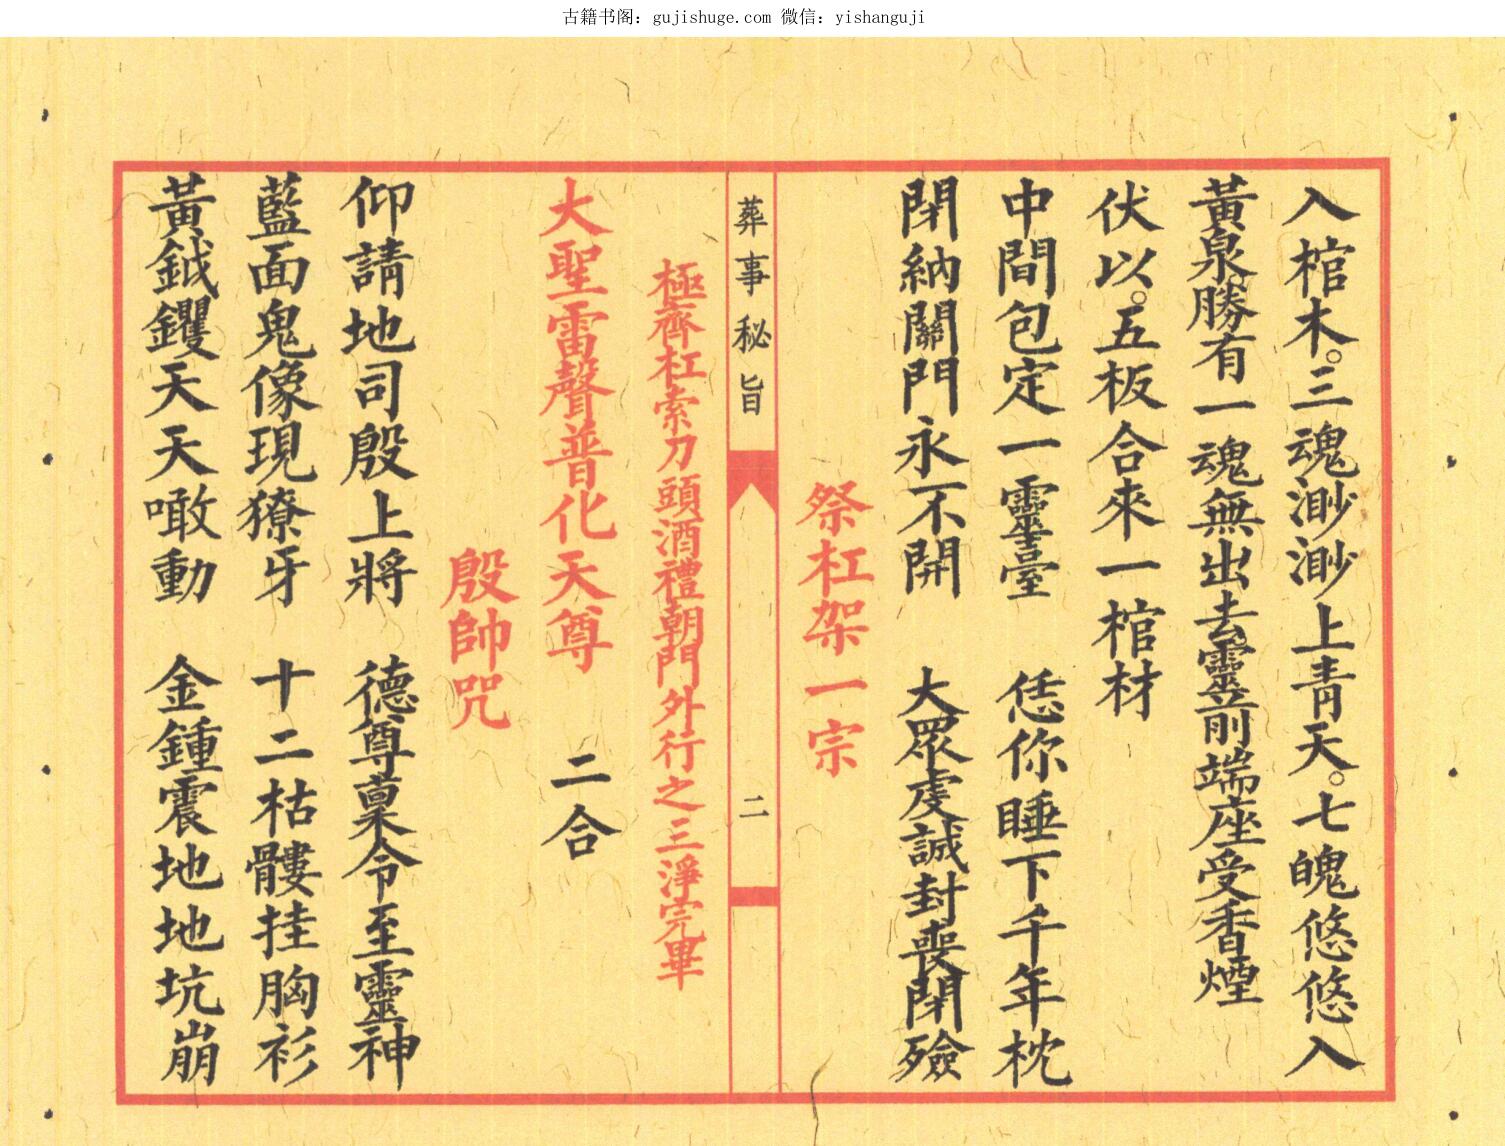 古籍书阁：gujishuge.com 微信：yishanguji
入棺木。三魂渺渺上青天。七魄悠悠入
黃泉。勝有一魂無出去靈前端座受香煙
伏以。五板合來一棺材
中間包定一靈臺　恁你睡下千年枕
閉納關門永不開　大眾虔誠封喪閉殮
祭杠架一宗
葬事秘旨　二
極齊杠索刀頭酒禮朝門外行之三淨完畢
大聖雷聲普化天尊　二合
殷帥咒
仰請地司殷上將　德尊稟令至靈神
藍面鬼像現獠牙　十二枯髏挂胸衫
黃鉞钁天天噉動　金鍾震地地坑崩